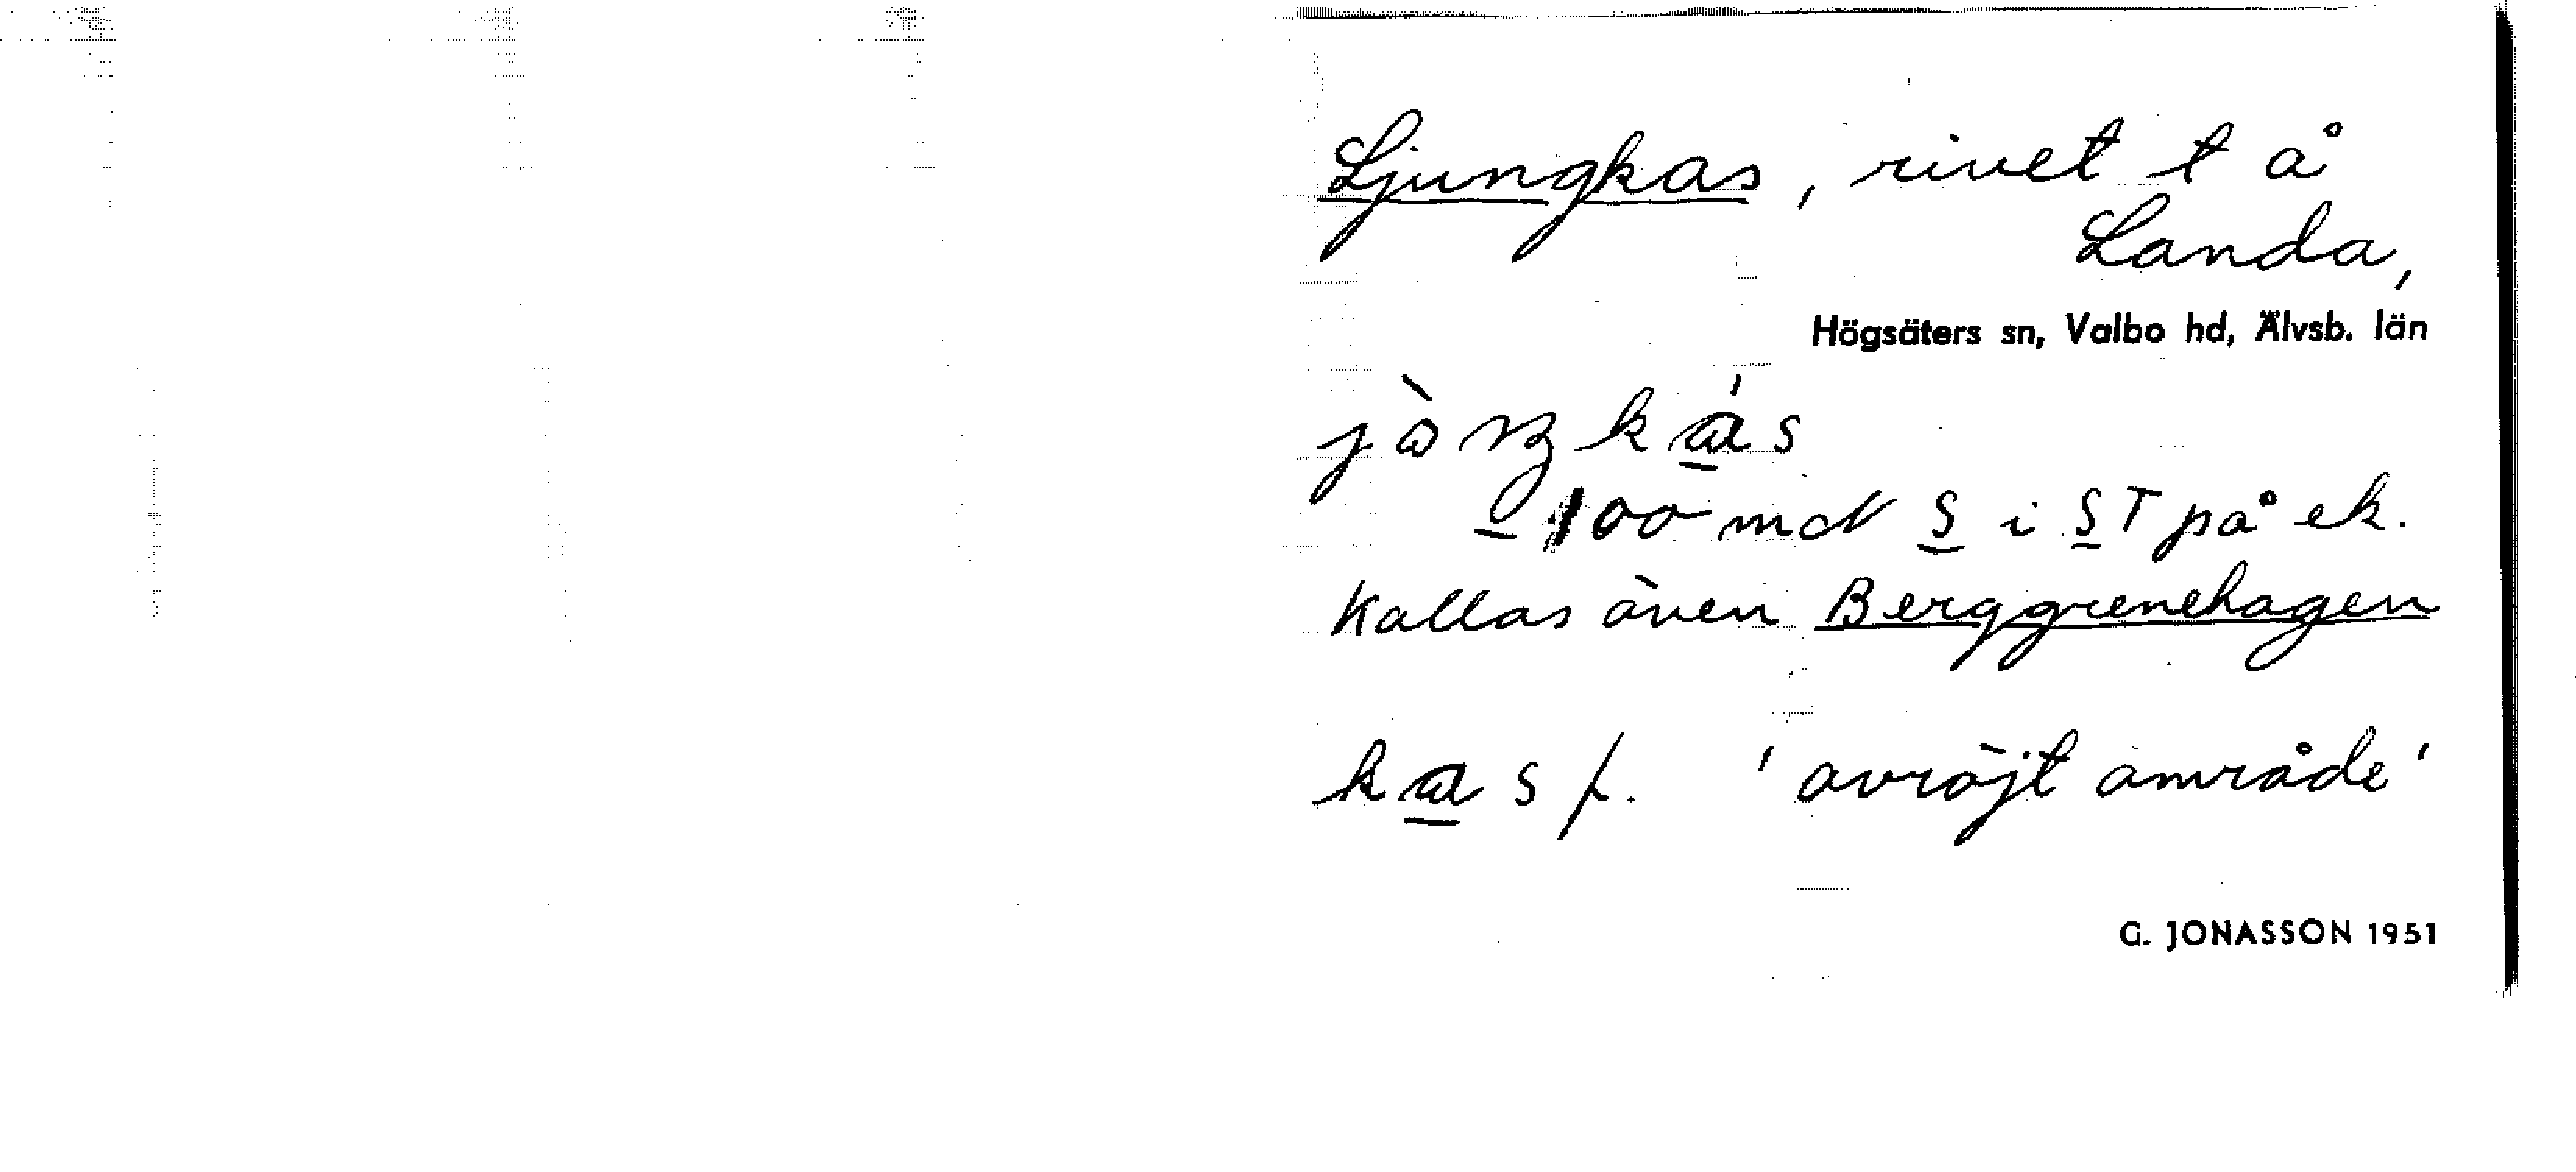 Ljungkas, rivet t å
Landa,
Högsäters sn, Valbo hd, Älvsb. län
100 m N S i ST på ek.
Kallas även Berggrenehagen
kas f. 'avröjt område'
G. JONASSON 1951